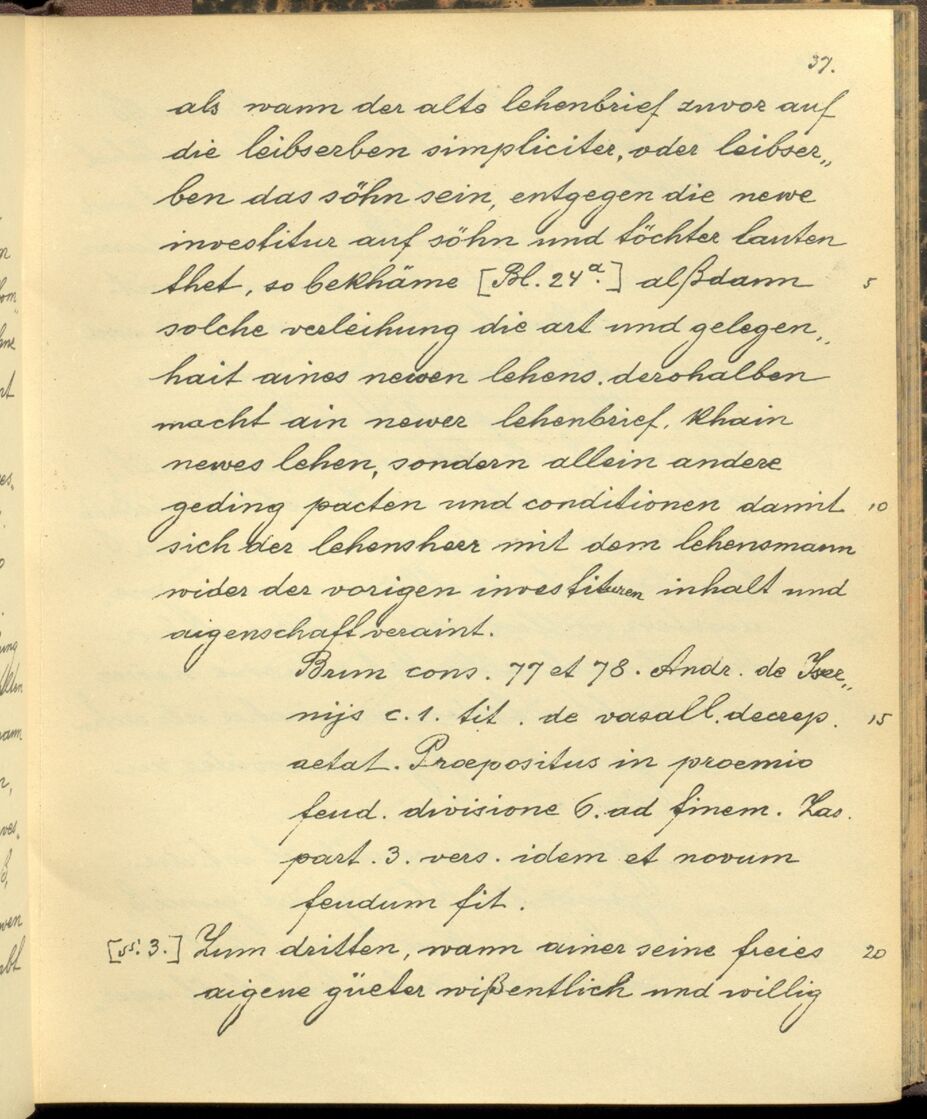 37.
als wann der alte lehenbrief zuvor auf
die leibserben simpliciter, oder leibser„
ben das söhn sein, entgegen die newe
investitur auf söhn und töchter lauten
thet, so bekhäme [Bl. 24ª.] alßdann 5
solche verleihung die art und gelegen„
hait aines newen lehens. derohalben
macht ain newer lehenbrief, khain
newes lehen, sondern allein andere
geding pacten und conditionen damit 10
sich der lehensherr mit dem lehensmann
wider der vorigen investituren inhalt und
aigenschaft veraint.
Brun cons. 77 et 78. Andr. de Iser„
nijs c. 1. tit. de vasall. decrep. 15
aetat. Praepositus in proemio
feud. divisione 6. ad finem. Zas.
part. 3. vers. idem et novum
feudum fit.
[§. 3.] Zum dritten, wann ainer seine freies 20
aigene güeter wißentlich und willig